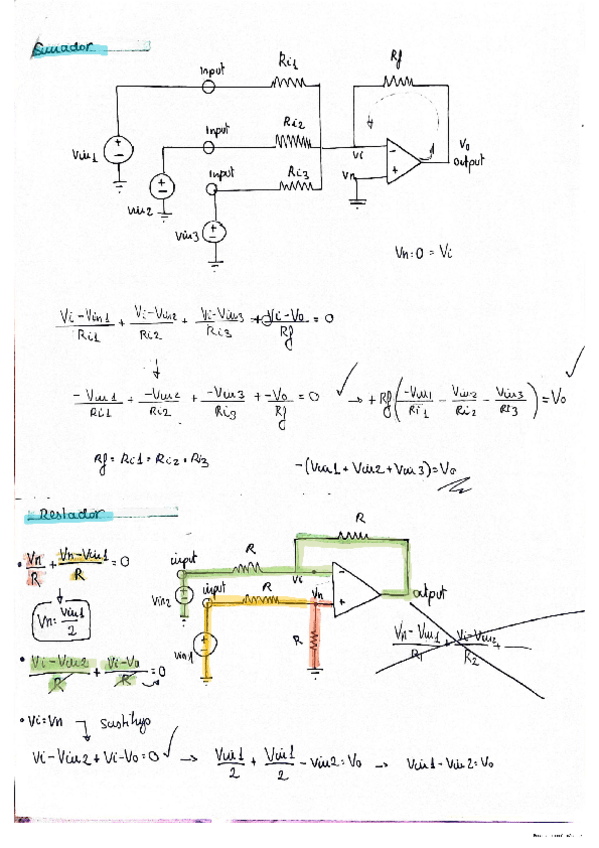 Sumador
Input
Ri1
Rf
Input
Ri2
Vin1
Input
Vi
Vo
output
Ri3
Vn
Vin2
Vin3
Vn=0=Vi
(Vi-Vin1)/Ri1 + (Vi-Vin2)/Ri2 + (Vi-Vin3)/Ri3 + (Vi-Vo)/Rf = 0
-Vin1/Ri1 + -Vin2/Ri2 + -Vin3/Ri3 + -Vo/Rf = 0 → +Rf(-Vin1/Ri1 - Vin2/Ri2 - Vin3/Ri3) = Vo
Rf=Ri1=Ri2=Ri3
-(Vin1+Vin2+Vin3)=Vo
- Restador
R
• Vn/R + (Vn-Vin1)/R = 0
input
R
Vi
output
Vin2
input
R
Vn
Vn=Vin1/2
Vin1
R
(Vn-Vin1)/R1 + (Vi-Vin2)/R2 +
• (Vi-Vin2)/R + (Vi-Vo)/R = 0
• Vi=Vn → Sustituyo
Vi-Vin2+Vi-Vo=0 → Vin1/2 + Vin1/2 - Vin2=Vo → Vin1-Vin2=Vo